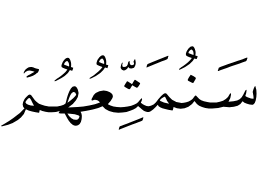 سَنُمَتِّعُهُمۡ